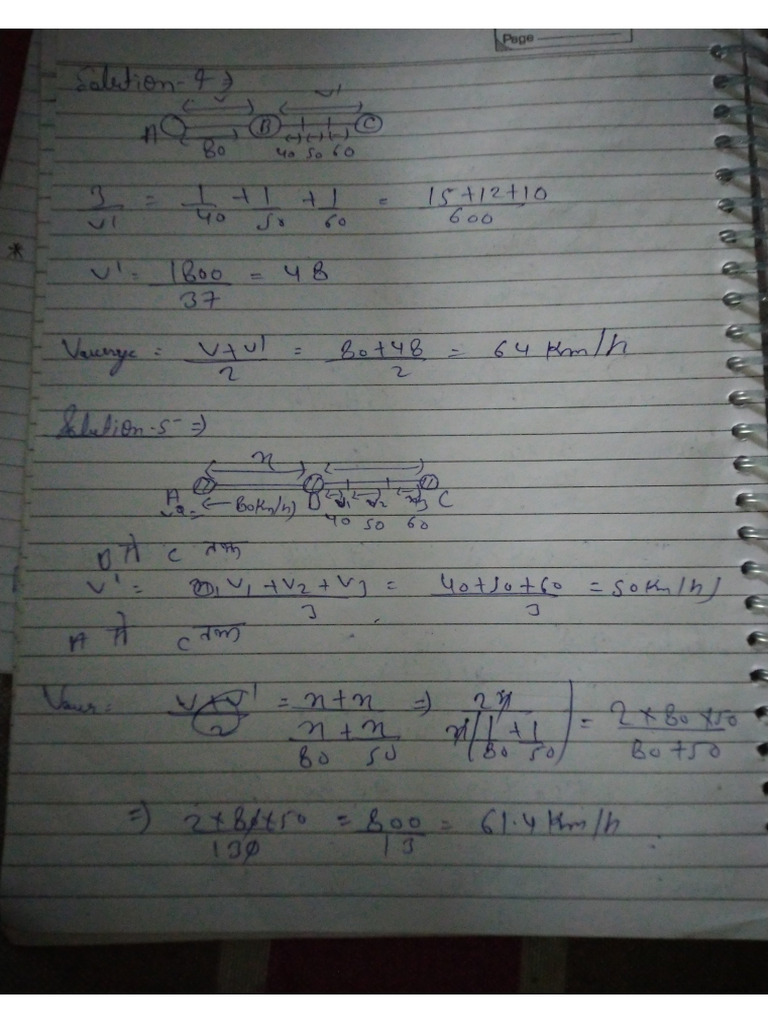 Page
Solution-4 ⇒
V V'
A B C
80 40 50 60
3/V' = 1/40 + 1/50 + 1/60 = (15+12+10)/600
*
V' = 1800/37 = 48
Vaverage = (V+V')/2 = (80+48)/2 = 64 Km/h
Solution-5 ⇒
x
A B C
80 Km/h V1 V2 V3
40 50 60
B से C तक
V' = (V1+V2+V3)/3 = (40+50+60)/3 = 50 Km/h
A से C तक
Vaver = (V+V')/2 = (x+x)/(x/80 + x/50) ⇒ 2x/(x(1/80 + 1/50)) = (2×80×50)/(80+50)
⇒ (2×80×50)/130 = 800/13 = 61.4 Km/h